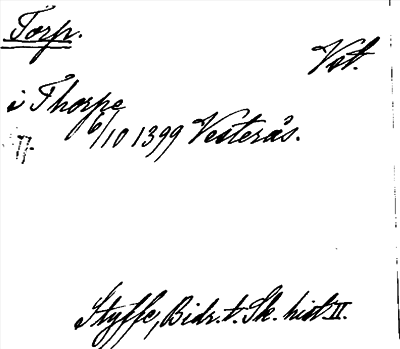 Torp.
Vst.
i Thorpe
6/10 1399 Vesterås.
Styffe, Bidr. t. Sk. hist II.